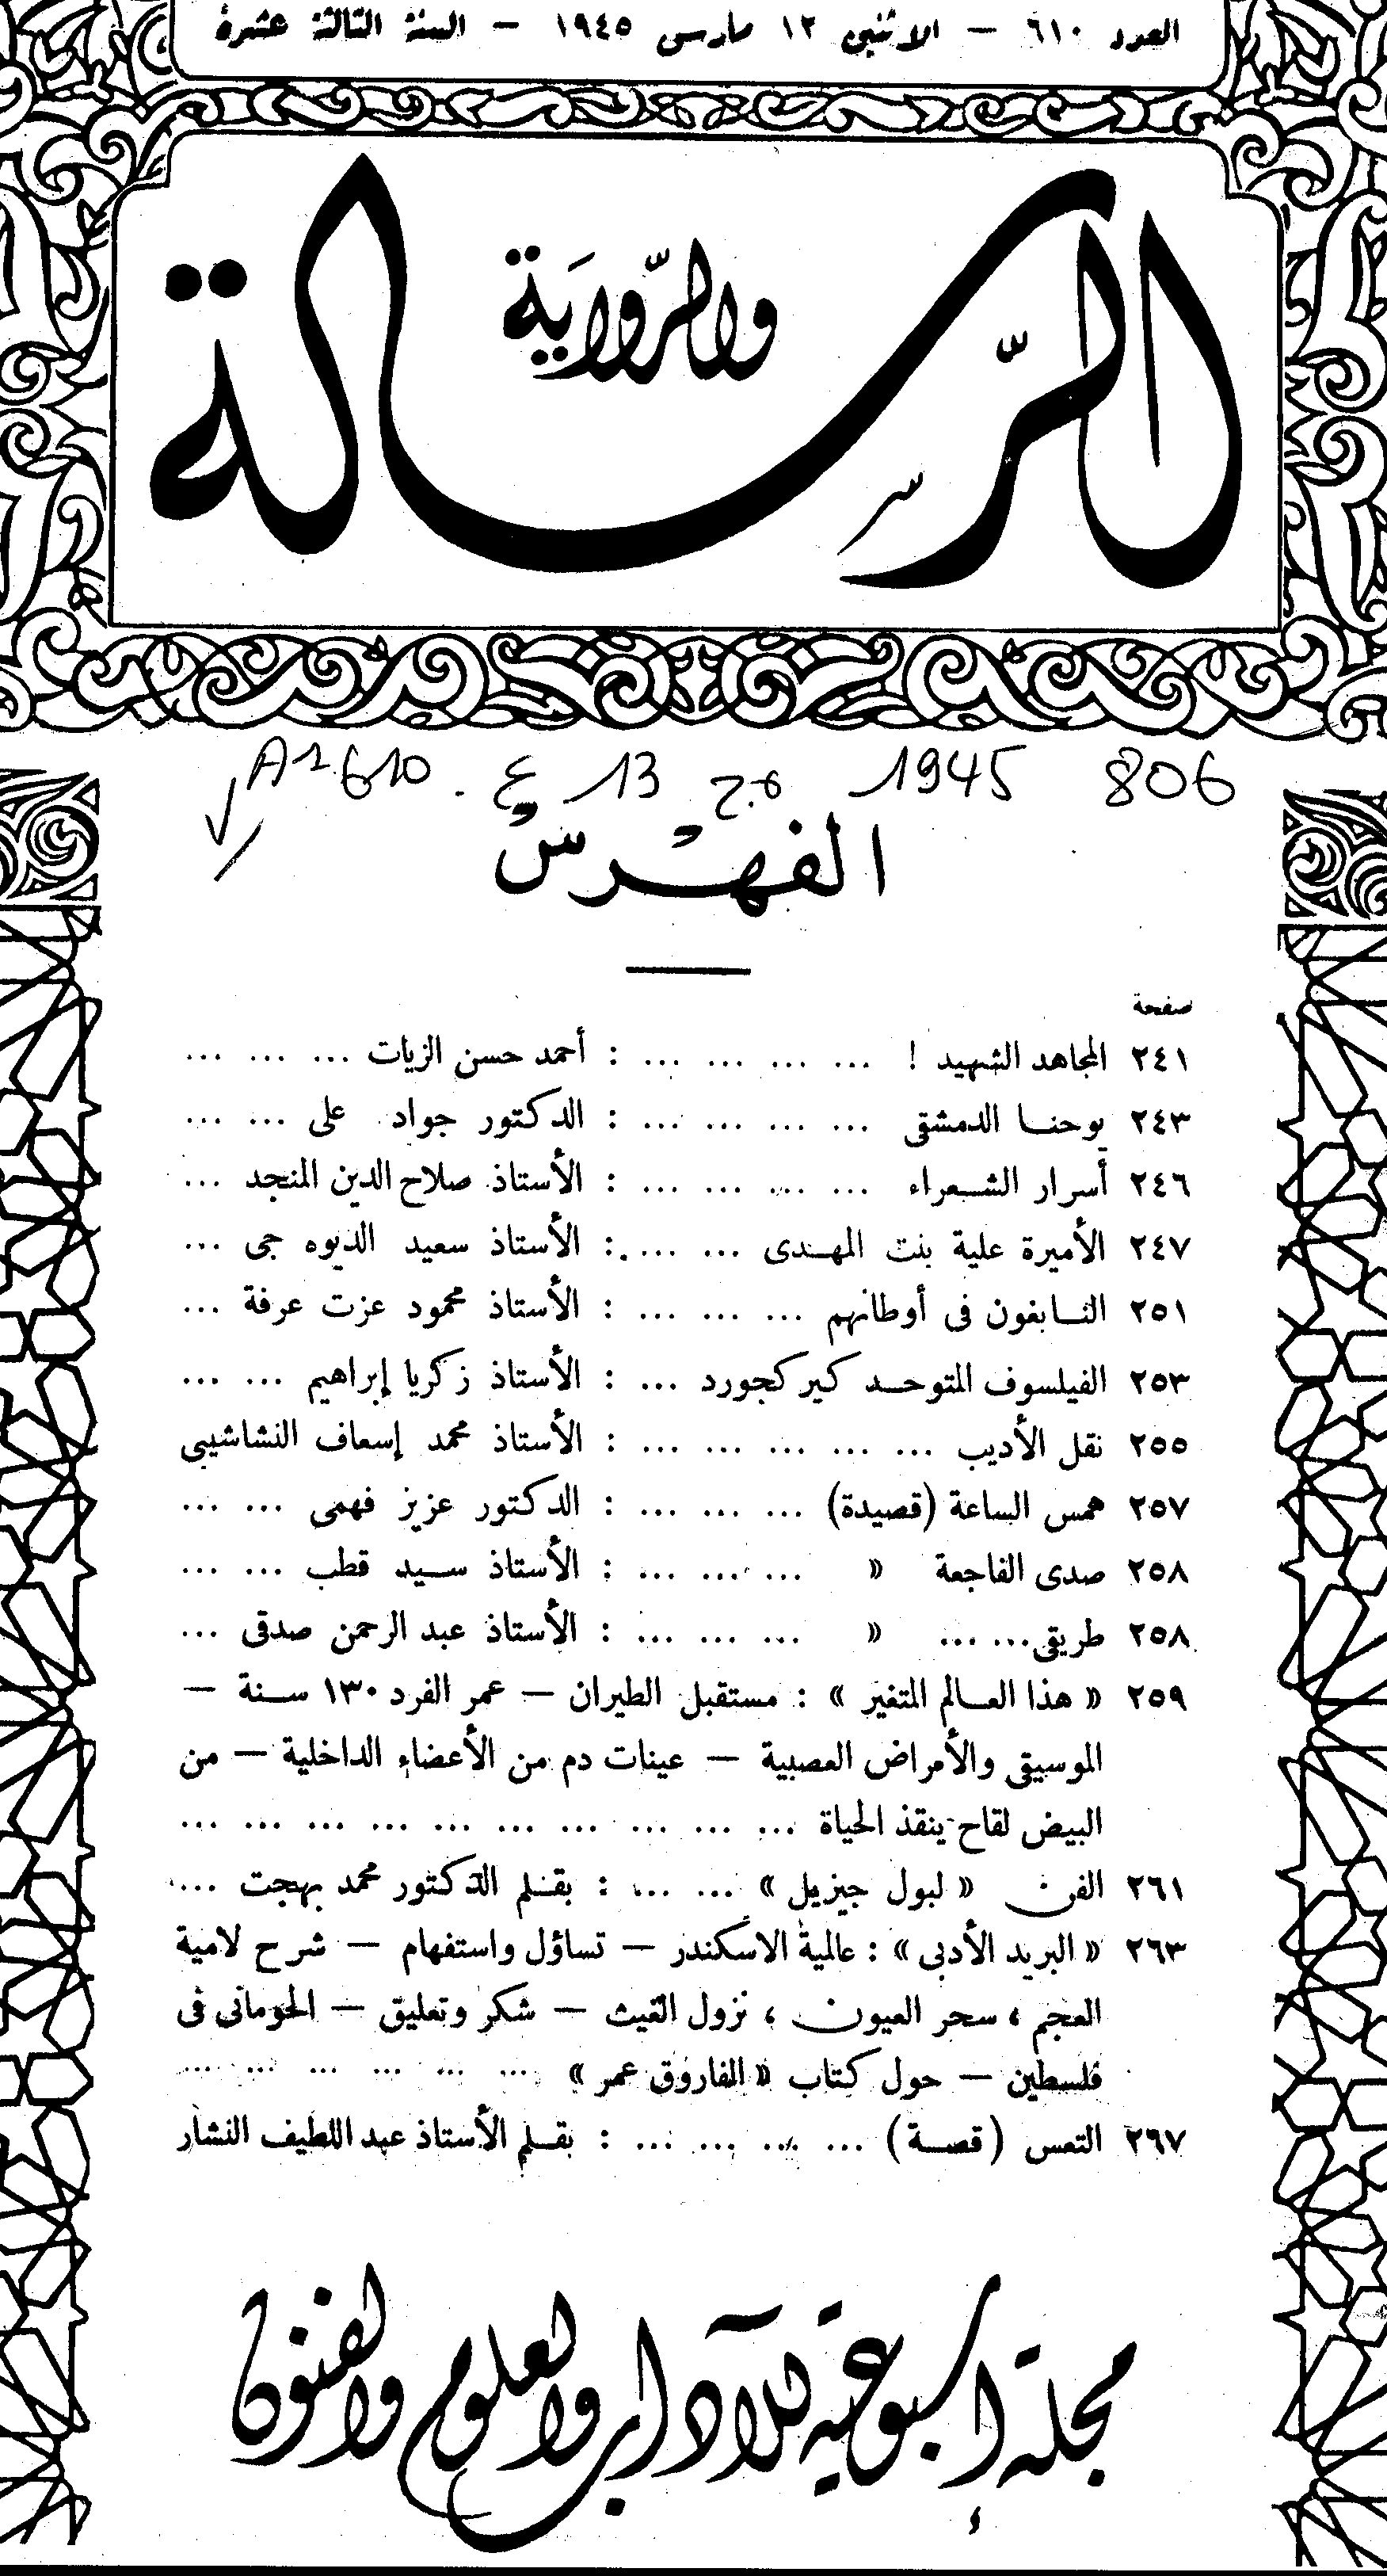 العدد ٦١٠ — الاثنين ١٢ مارس ١٩٤٥ — السنة الثالثة عشرة
الرسالة
والرواية
A1 610 . ع 13 ج.م 1945 806
الفهرس
صفحة
٢٤١ المجاهد الشهيد ! ... ... ... ... : أحمد حسن الزيات ... ... ...
٢٤٣ يوحنا الدمشقى ... ... ... ... : الدكتور جواد على ... ...
٢٤٦ أسرار الشعراء ... ... ... ... : الأستاذ صلاح الدين المنجد ...
٢٤٧ الأميرة علية بنت المهدى ... ... ... : الأستاذ سعيد الديوه جى ...
٢٥١ النابغون فى أوطانهم ... ... ... : الأستاذ محمود عزت عرفة ...
٢٥٣ الفيلسوف المتوحد كيركجورد ... : الأستاذ زكريا إبراهيم ... ...
٢٥٥ نقل الأديب ... ... ... ... ... : الأستاذ محمد إسعاف النشاشيبى
٢٥٧ همس الساعة (قصيدة) ... ... ... : الدكتور عزيز فهمى ... ...
٢٥٨ صدى الفاجعة » ... ... ... : الأستاذ سيد قطب ... ...
٢٥٨ طريقى ... ... » ... ... ... : الأستاذ عبد الرحمن صدقى ...
٢٥٩ « هذا العالم المتغير » : مستقبل الطيران — عمر الفرد ١٣٠ سنة —
الموسيقى والأمراض العصبية — عينات دم من الأعضاء الداخلية — من
البيض لقاح ينقذ الحياة ... ... ... ... ... ... ... ... ... ...
٢٦١ الفن « لبول جيزيل » ... ... : بقلم الدكتور محمد بهجت ...
٢٦٣ « البريد الأدبى » : عالمية الاسكندر — تساؤل واستفهام — شرح لامية
العجم ، سحر العيون ، نزول الغيث — شكر وتعليق — الحومانى فى
فلسطين — حول كتاب « الفاروق عمر » ... ... ... ... ... ...
٢٦٧ التعس (قصة) ... ... ... ... : بقلم الأستاذ عبد اللطيف النشار
مجلة أسبوعية للآداب والعلوم والفنون